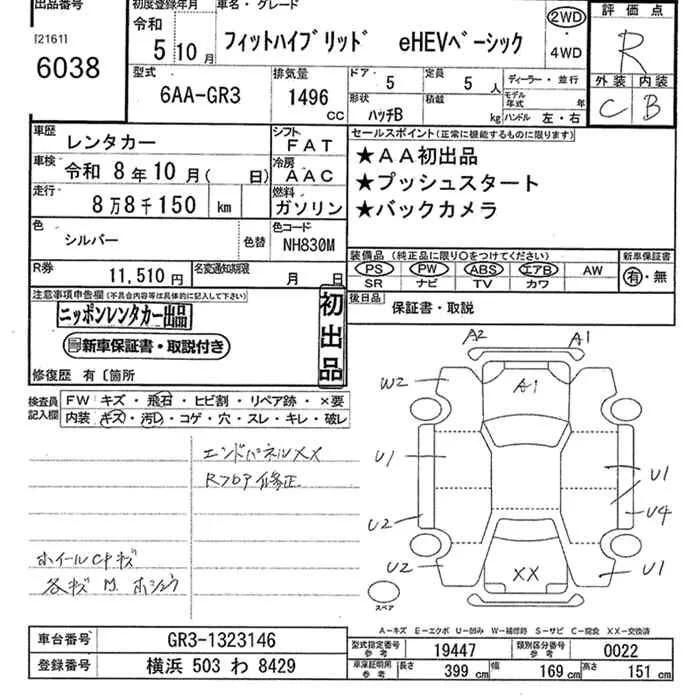 出品番号
[2161]
6038
初度登録年月
令和
5 10月
車名・グレード
フィットハイブリッド eHEVベーシック
2WD
・
4WD
評価点
R
外装 内装
C B
型式
6AA-GR3
排気量
1496
CC
ドア・ 5
定員 5 人
形状
ハッチB
積載
kg
ディーラー・並行
モデル年式 年
ハンドル 左・右
車歴
レンタカー
車検 令和 8年10月( 日)
走行
8万8千150 km
シフト
FAT
冷房
AAC
燃料
ガソリン
セールスポイント(正常に機能するものに限ります)
★AA初出品
★プッシュスタート
★バックカメラ
色
シルバー
色替
色コード
NH830M
装備品(純正品に限り○をつけてください)
PS PW ABS エアB AW
SR ナビ TV カワ
新車保証書
有・無
R券
11,510円
名変通知期限
月 日
後日品
保証書・取説
注意事項申告欄(不具合内容等は具体的に記入して下さい)
ニッポンレンタカー出品
新車保証書・取説付き
初出品
修復歴 有〔箇所
検査員記入欄
FW キズ・飛石・ヒビ割・リペア跡・×要
内装 キズ・汚レ・コゲ・穴・スレ・キレ・破レ
エンドパネルXX
Rフロア修正
ホイールCPキズ
各キズ M. ホシュウ
A2 A1
W2 A1
U1 U1
U2 U4
U2 XX U1
スペア
A-キズ E-エクボ U-凹み W-補修跡 S-サビ C-腐食 XX-交換済
車台番号
GR3-1323146
登録番号
横浜 503 わ 8429
型式指定番号
参考
19447
類別区分番号
参考
0022
車庫証明用
参考
長さ 399 cm 幅 169 cm 高さ 151 cm